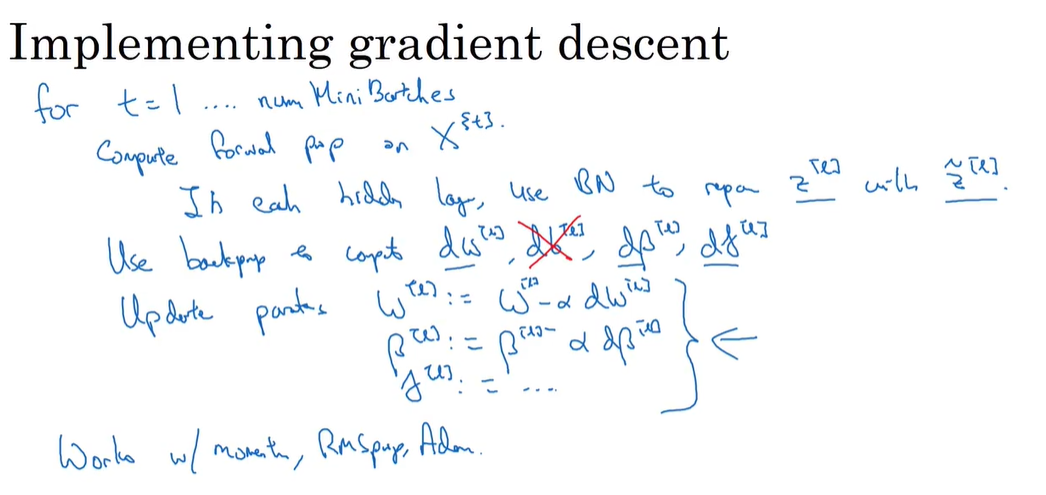 Implementing gradient descent
for t=1 .... num MiniBatches
Compute forwal pop on X^{t}.
In eah hidden lay, use BN to repan z^[l] with z̃^[l].
Use backprop to compt dw^[l], db^[l], dβ^[l], dγ^[l]
Update parates W^[l] := W^[l] - α dW^[l]
β^[l] := β^[l] - α dβ^[l]
γ^[l] := ....
Works w/ moment, RMSprop, Adam.